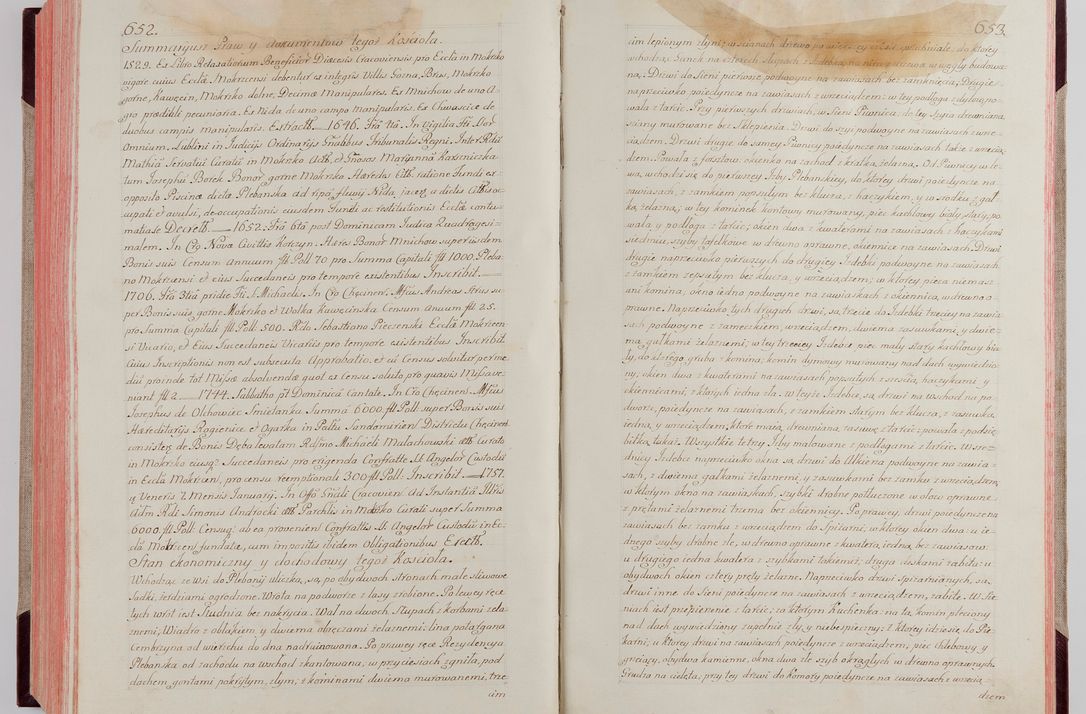 652.
Summaryusz Praw y dokumentow tegoż Kościoła.
1529. Ex Libro Retaxationum Beneficior Diæcesis Cracoviensis pro Ecclã in Mokrsko
vigore cuius Ecclã Mokrscensi debentur ex integris Villis Gorna, Brus, Mokrsko
gorne, Kawęcin, Mokrsko dolne, Decimæ Manipulares. Ex Mnichow de uno A-
gro prædiali pecuniaria. Ex Nida de uno campo manipularis. Ex Chwascice de
duobus campis manipularis. Extractb.__1646. Frã 4tã. In Vigilia Fti
Omnium. Lublini in Judicijs Ordinarijs Gnãlibus Tribunalis Regni. Inter Rdũ
Mathiã Servatii Curatũ in Mokrsko Actb. et Gnosos Mariannã Karsniczka
tum Josephũ Borek Bonor gorne Mokrsko Hæreda Citb. ratione fundi ex
opposito Piscinæ dictæ Plebanska ad ripã fluvij Nida jacen, a dictis Citb. oc-
cupati et avulsi, de-occupationis eiusdem Fundi ac restitutionis Ecclæ contu-
matiale Decretb.__1652. Frã 6ta post Dominicam Judica Quadragesi-
malem. In Cro Nova Civittis Korczyn. Hæres Bonor Mnichow super iisdem
Bonis suis Censum annuum fll Poll 70 pro Summa Capitali fll 1000. Pleba-
no Mokrscensi et eius Succedaneis pro tempore existentibus Inscribit.__
1706. Frã 3tiã pridie Fti S. Michaelis. In Cro Chęcinen. Mfcus Andreas
per Bonis suis gorne Mokrsko et Wolka Kawęcinska Censum anuum fll 25.
pro Summa Capitali fll Poll. 500. Rdo Sebastiano Pieczenski Ecclã Mokrscen-
si Vicario, et Eius Succedaneis Vicariis pro tempore existentibus Inscribit.
Cuius Inscriptionis non est subsecuta Approbatio, et cũ Census solvitur per me-
dii proinde tot Missæ absolvendæ quot ex Censu soluto pro quavis Missa ve-
niant fll 2.__1744. Sabbatho pt Dominicã Cantate. In Cro Chęcinen. Mfcus
Josephus de Olchowiec Smietanka Summã 6000 fll Poll. super Bonis suis
Hæreditarijs Rogienice et Ogarka in Palttu Sandomirien Districtu Chęcinen
consisten. de Bonis Dębu levatam Rdssmo Michaeli Malachowski Curato
in Mokrsko eiusq Succedaneis pro erigenda Confrattte SS. Angelor Custodũ
in Eccla Mokrscen, pro censu reemptionali 300 fll Poll. Inscribit.__1757.
y Veneris 2. Mensis Januarij. In Offo Gnãli Cracovien. Ad Instantiã Illtris
Adm Rdi Simonis Androcki Parchlis in Mokrsko Curati super Summa
6000 fll Poll. Censuq ab ea provenien Confrattis SS. Angelor Custodũ in Ec-
cla Mokrscen fundatæ, cum impositis ibidem Obligationibus Erectb.
Stan ekonomiczny y dochodowy tegoż Kościoła.
Wchodząc ze wsi do Plebanij uliczką, są, po obydwoch stronach małe śliwowe
Sadki, żerdziami ogrodzone. Wrota na podworze z łasy zrobione. Po lewey ręce
tych wrot jest Studnia bez nakrycia. Wał na dwoch Słupach z korbami żela-
znemi, Wiadro z obłąkiem y dwiema obręczami żelaznemi: lina potargana
Cembrzyna od wierzchu do dna nadruinowana. Po prawey ręce Rezydencya
Plebanska od zachodu na wschod zkantowana, w przyciesiach zgniła, pod
dachem gontami pokrytym, złym; z kominami dwiema murowanemi, trze-
cim
653.
cim lepionym złym; w scianach drzewo powiększey części sprochniałe: do ktorey
wchodząc Ganek na czterech słupach z Izdebką na nim y gorową w węgły budowa-
ną. Drzwi do Sieni pierwsze podwoyne na zawiasach bez zamknięcia, Drugie
naprzeciwko pojedyncze na zawiasach z wrzeciądzem: w tey podłoga zdylowano-
wała z tarcic. Przy pierwszych drzwiach, w Sieni Piwnica, do tey Szyia drewniana,
sciany murowane bez Sklepienia. Drzwi do szyi podwoyne na zawiasach z wrze-
ciądzem. Drzwi drugie do samey Piwnicy pojedyncze na zawiasach także z wrzecią-
dzem. Powała z forsztow: okienko na zachod z kratką żelazną. Od Piwnicy w le-
wą, wchodzi się do pierwszey Izby Plebańskiey, do ktorey drzwi pojedyncze na
zawiasach, z zamkiem popsutym bez klucza, z haczykiem, y w srodku z gał-
ką, żelazną; w tey kominek kantowy murowany, piec kachlowy biały, stary; po-
wała y podłoga z tarcic; okien dwa z kwaterami na zawiasach z haczykami
siedmiu, szyby taflkowe w drewno oprawne, okiennice na zawiasach. Drzwi
drugie naprzeciwko pierwszych do drugiey Izdebki podwoyne na zawiasach
z zamkiem zepsutym bez klucza, y wrzeciądzem; w ktorey pieca niemasz
ani komina, okno iedno podwoyne na zawiasach z okiennicą, w drewno o-
prawne. Naprzeciwko tych drugich drzwi, są, trzecie do Izdebki trzeciey na zawia-
sach podwoyne z zameczkiem, wrzeciądzem, dwiema zasuwkami, y dwie-
ma gałkami żelaznemi; w tey trzeciey Izdebce piec mały stary kachlowy bia-
ły, do ktorego gruba z komina; komin dymowy murowany nad dach wywiedzio-
ny; okien dwa z kwaterami na zawiasach popsutych z sześcią, haczykami, y
okiennicami, z ktorych iedna zła. W teyże Izdebce, są, drzwi na wschod na po-
dworze, pojedyncze z zawiasach, z zamkiem stałym bez klucza, z zasuwką
iedną, y wrzeciądzem, ktore maią, drewnianą, zasuwę z tarcic: powała z podsię-
bitką, takąż. Wszystkie te trzy Izby malowane z podłogami z tarcic. W sre-
dniey Izdebce naprzeciwko okna są drzwi do Alkierza podwoyne na zawia-
sach, z dwiema gałkami żelaznemi, y zasuwkami bez zamku z wrzeciądzem,
w ktorym okno na zawiaskach, szybki drobne potłuczone w ołow oprawne
z prętami żelaznemi trzema bez okiennicy. Po prawey, drzwi pojedyncze na
zawiasach bez zamku z wrzeciądzem do Spiżarni, w ktorey okien dwa: u ie-
dnego szyby drobne złe, w drewno oprawne z kwaterą iedną, bez zawiasow:
u drugiego iedna kwatera z szybkami takiemiż; druga deskami zabita: u
obydwoch okien cztery pręty żelazne. Naprzeciwko drzwi Spiżarnianych, są,
drzwi inne do Sieni pojedyncze na zawiasach z wrzeciądzem, zabite. W Sie-
niach iest przepierzenie z tarcic: za ktorym Kuchenka: na tę, komin pleciony
nad dach wywiedziony zupełnie zły, y niebespieczny: z ktorey idzie się, do Pie-
karni, u ktorey drzwi na zawiasach pojedyncze z wrzeciądzem; piec chlebowy, y
grzeiący, obydwa kamienne, okna dwa złe szyb okrągłych w drewno oprawnych.
Gruba na cielęta: przy tey drzwi do Komory pojedyncze na zawiasach z wrzecią-
dzem